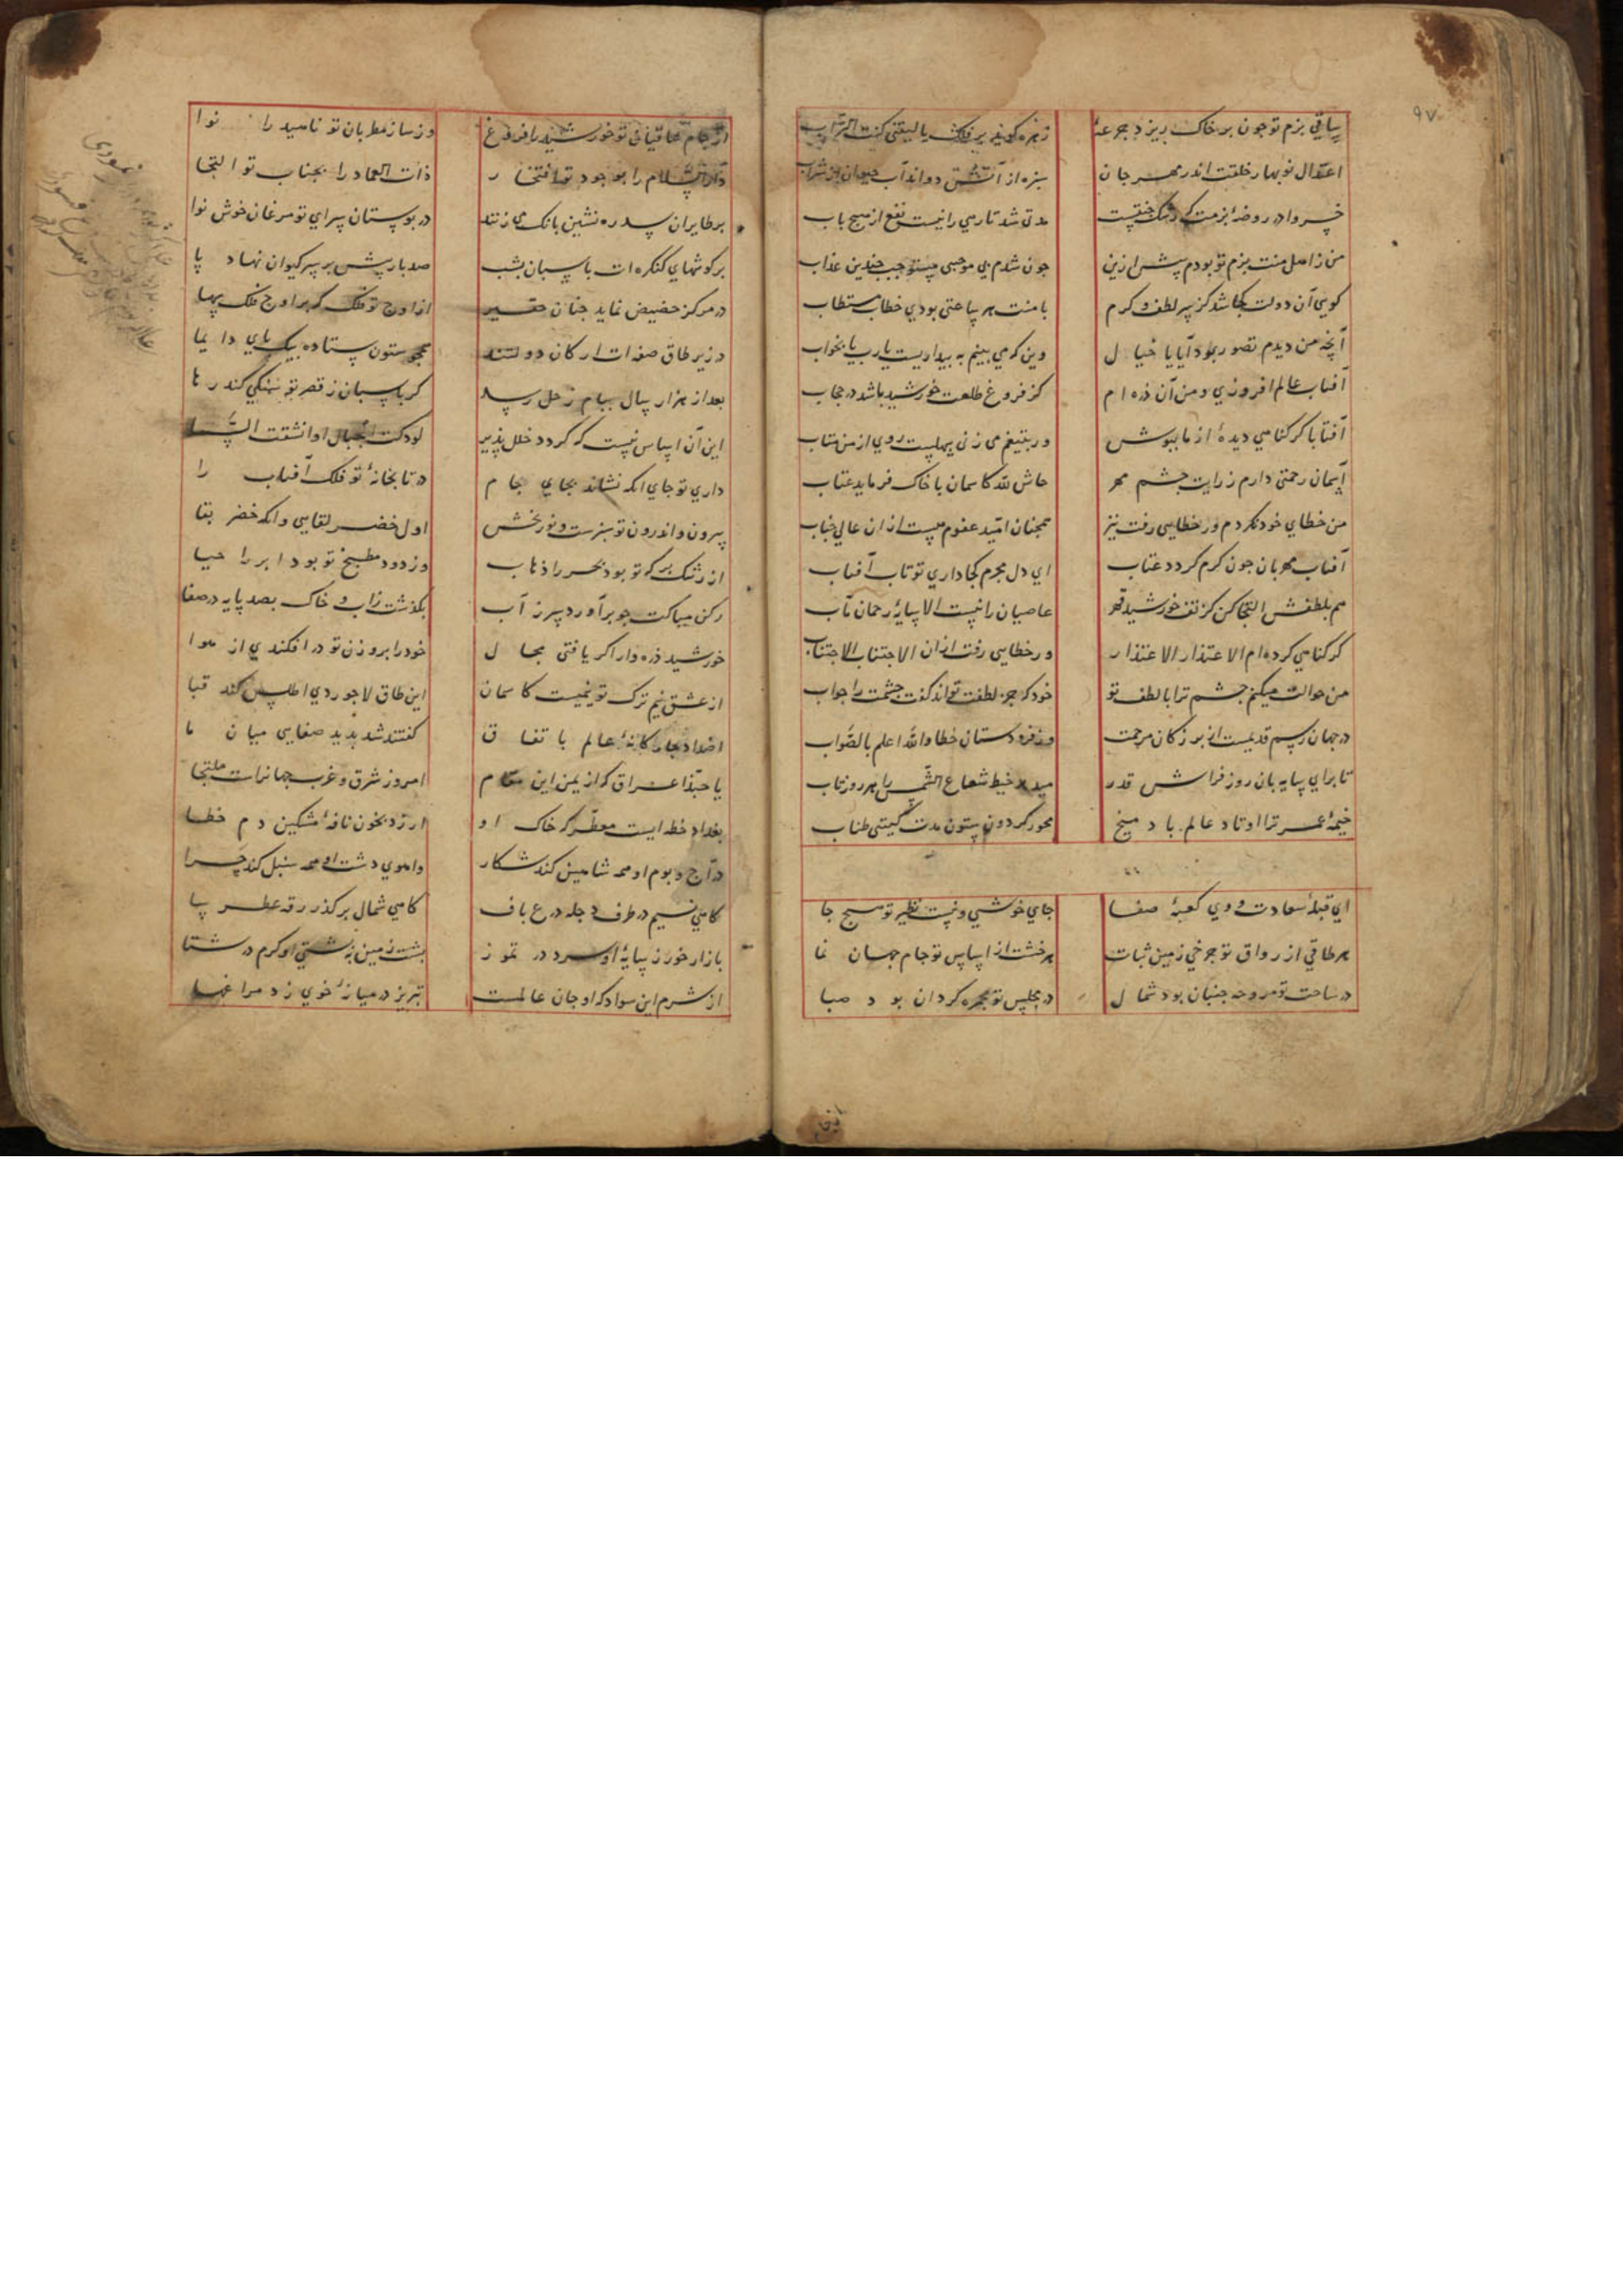 ساقی بزم تو چون بر خاک ریزد جرعهٔ زهره گوید بر فلک یا لیتنی کنت التراب
اعتدال نوبهار خلقت اندر مهرجان سبزه از آتش دواند آب حیوان از شراب
خسروا در روضهٔ بزمت که رشک جنتست مدتی شد تا رهی را نیست نفع از هیچ باب
من ز اهل منت بزم تو بودم پیش ازین چون شدم بی موجبی مستوجب چندین عذاب
کویی آن دولت کجا شد کز سر لطف و کرم با منت هر ساعتی بودی خطاب مستطاب
آنچه من دیدم تصور بود آیا یا خیال وین که می بینم به بیداریست یا رب یا بخواب
آفتاب عالم افروزی و من آن ذره ام کز فروغ طلعت خورشید باشد در حجاب
آفتابا کر کناهی دیدهٔ از ما بپوش ور بتیغم می زنی سهلست روی از من متاب
آسمان رحمتی دارم ز رایت چشم مهر حاش لله کاسمان با خاک فرماید عتاب
من خطای خود نکردم ور خطایی رفت نیز همچنان امید عفوم هست از ان عالی جناب
آفتاب مهربان چون کرم کردد عتاب ای دل مجرم کجا داری تو تاب آفتاب
هم بلطفش التجا کن کز تف خورشید قهر عاصیان را نیست الا سایهٔ رحمان مآب
کر کناهی کرده ام الاعتذار الاعتذار ور خطایی رفت از ان الاجتناب الاجتناب
من حوالت میکنم چشم ترا با لطف تو خود که جز لطفت تواند کفت چشمت را جواب
در جهان رسم قدیمست از بزرکان مرحمت وز فرودستان خطا والله اعلم بالصواب
تا برای سایه بان روز فراش قدر میدهد خیط شعاع الشمس را هر روز تاب
خیمهٔ عمر ترا اوتاد عالم باد میخ محور کردون ستون مدت کیتی طناب
ای قبلهٔ سعادت و وی کعبهٔ صفا جای خوشی و نیست نظیر تو هیچ جا
هر طاقی از رواق تو چرخی زمین ثبات هر خشت از اساس تو جام جهان نما
در ساحت تو مروحه جنبان بود شمال در مجلس تو مجمره کردان بود صبا
از جام ساقیان تو خورشید را فروغ وز ساز مطربان تو ناهید را نوا
دار السلام را بوجود تو افتخار ذات العماد را بجناب تو التجا
بر طایران سدره نشین بانک می زنند در بوستان سرای تو مرغان خوش نوا
بر کوشهای کنکره ات پاسبان بشب صد بار پیش بر سر کیوان نهاد پا
در مرکز حضیض نماید چنان حقیر از اوج تو فلک که بر اوج فلک سها
در زیر طاق صفه ات ارکان دولتند همچو ستون ستاده بیک پای دایما
بعد از هزار سال ببام زحل رسد کر پاسبان ز قصر تو سنکی کند رها
این آن اساس نیست که کردد خلل پذیر لو دکت الجبال او انشقت السما
داری تو جای انکه نشاند بجای جام در تابخانهٔ تو فلک آفتاب را
بیرون و اندرون تو سبزست و نوربخش اول خضر لقایی و انکه خضر بقا
از رشک برکهٔ تو بود بحر را ذهاب وز دود مطبخ تو بود ابر را حیا
رکن مبارکت چو برآورد سر ز آب بکذشت ز آب و خاک بصد پایه در صفا
خورشید ذره وار اکر یافتی مجال خود را بروزن تو در افکندی از هوا
از عشق نیم ترک تو نیمیست کاسمان این طاق لاجوردی اطلس کند قبا
اضداد چار کانهٔ عالم باتفاق کفتند شد پدید صفایی میان ما
یا حبذا عراق که از یمن این مقام امروز شرق و غرب جهانرات ملتجا
بغداد خطه ایست معطر که خاک او ارزد بخون نافهٔ مشکین دم خطا
دراج و بوم او همه شاهین کند شکار واهوی دشت او همه سنبل کند چرا
کاهی نسیم در طرف دجله درع باف کاهی شمال بر کذر رقه عطر سا
بازار خور ز سایهٔ او سرد در تموز پشت زمین ز پشتی او کرم در شتا
از شرم این سواد که او جان عالمست تبریز در میانهٔ خوی زد مراغها